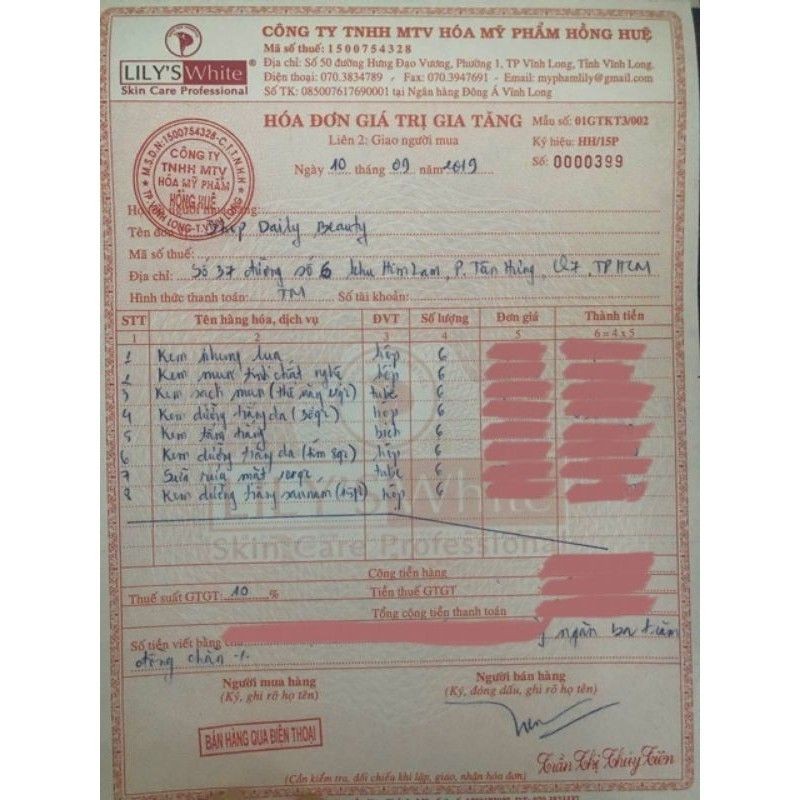 CÔNG TY TNHH MTV HÓA MỸ PHẨM HỒNG HUỆ
Mã số thuế: 1500754328
Địa chỉ: Số 50 đường Hưng Đạo Vương, Phường 1, TP Vĩnh Long, Tỉnh Vĩnh Long.
Điện thoại: 070.3834789 - Fax: 070.3947691 - Email: myphamlily@gmail.com
Số TK: 085007617690001 tại Ngân hàng Đông Á Vĩnh Long
LILY'S White ®
Skin Care Professional
HÓA ĐƠN GIÁ TRỊ GIA TĂNG Mẫu số: 01GTKT3/002
Liên 2: Giao người mua Ký hiệu: HH/15P
Ngày 10 tháng 09 năm 2019 Số: 0000399
M.S.D.N:1500754328-C.T.T.N.H.H
CÔNG TY
TNHH MTV
HÓA MỸ PHẨM
HỒNG HUỆ
TP VĨNH LONG-T.VĨNH LONG
Shop Daily Beauty
Mã số thuế:
Địa chỉ: Số 37 đường số 6 khu Him Lam, P. Tân Hưng, Q7, TP HCM
Hình thức thanh toán: TM Số tài khoản:
STT Tên hàng hóa, dịch vụ ĐVT Số lượng Đơn giá Thành tiền
1 2 3 4 5 6 = 4 x 5
1 Kem nhung lụa hộp 6
2 Kem mụn tinh chất nghệ hộp 6
3 Kem sạch mụn tube 6
4 Kem dưỡng trắng da hộp 6
5 Kem tắm trắng bịch 6
6 Kem dưỡng trắng da hộp 6
7 Sữa rửa mặt tube 6
8 Kem dưỡng trắng hộp 6
LILY'S White
Skin Care Professional
Cộng tiền hàng
Thuế suất GTGT: 10 % Tiền thuế GTGT
Tổng cộng tiền thanh toán
Số tiền viết bằng ngàn ba trăm
đồng chẵn
Người mua hàng Người bán hàng
(Ký, ghi rõ họ tên) (Ký, đóng dấu, ghi rõ họ tên)
BÁN HÀNG QUA ĐIỆN THOẠI
Trần Thị Thủy Tiên
(Cần kiểm tra, đối chiếu khi lập, giao, nhận hóa đơn)